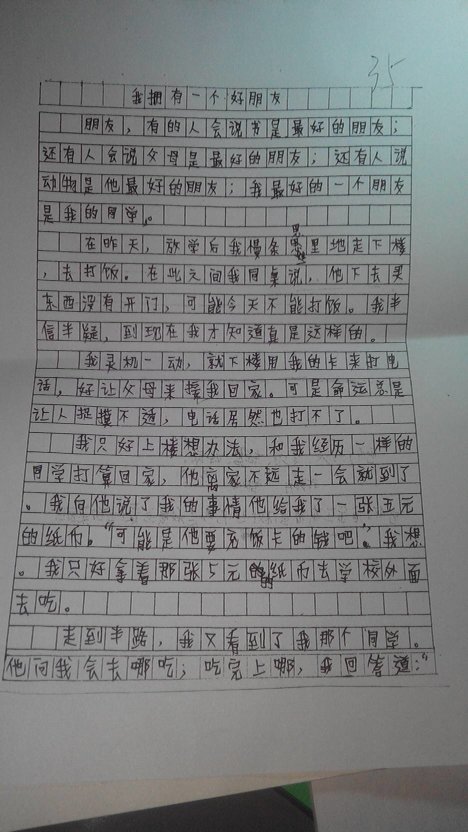 35
我拥有一个好朋友
朋友，有的人会说书是最好的朋友；
还有人会说父母是最好的朋友；还有人说
动物是他最好的朋友；我最好的一个朋友
是我的同学。
在昨天，放学后我慢条思里地走下楼
，去打饭。在此之间我同桌说，他下去买
东西没有开门，可能今天不能打饭。我半
信半疑，到现在我才知道真是这样的。
我灵机一动，就下楼用我的卡来打电
话，好让父母来接我回家。可是命运总是
让人捉摸不透，电话居然也打不了。
我只好上楼想办法，和我经历一样的
同学打算回家，他离家不远走一会就到了
。我向他说了我的事情他给我了一张五元
的纸币。“可能是他要充饭卡的钱吧”。我想
。我只好拿着那张5元的纸币去学校外面
去吃。
走到半路，我又看到了我那个同学。
他问我会去哪吃；吃完上哪，我回答道：“